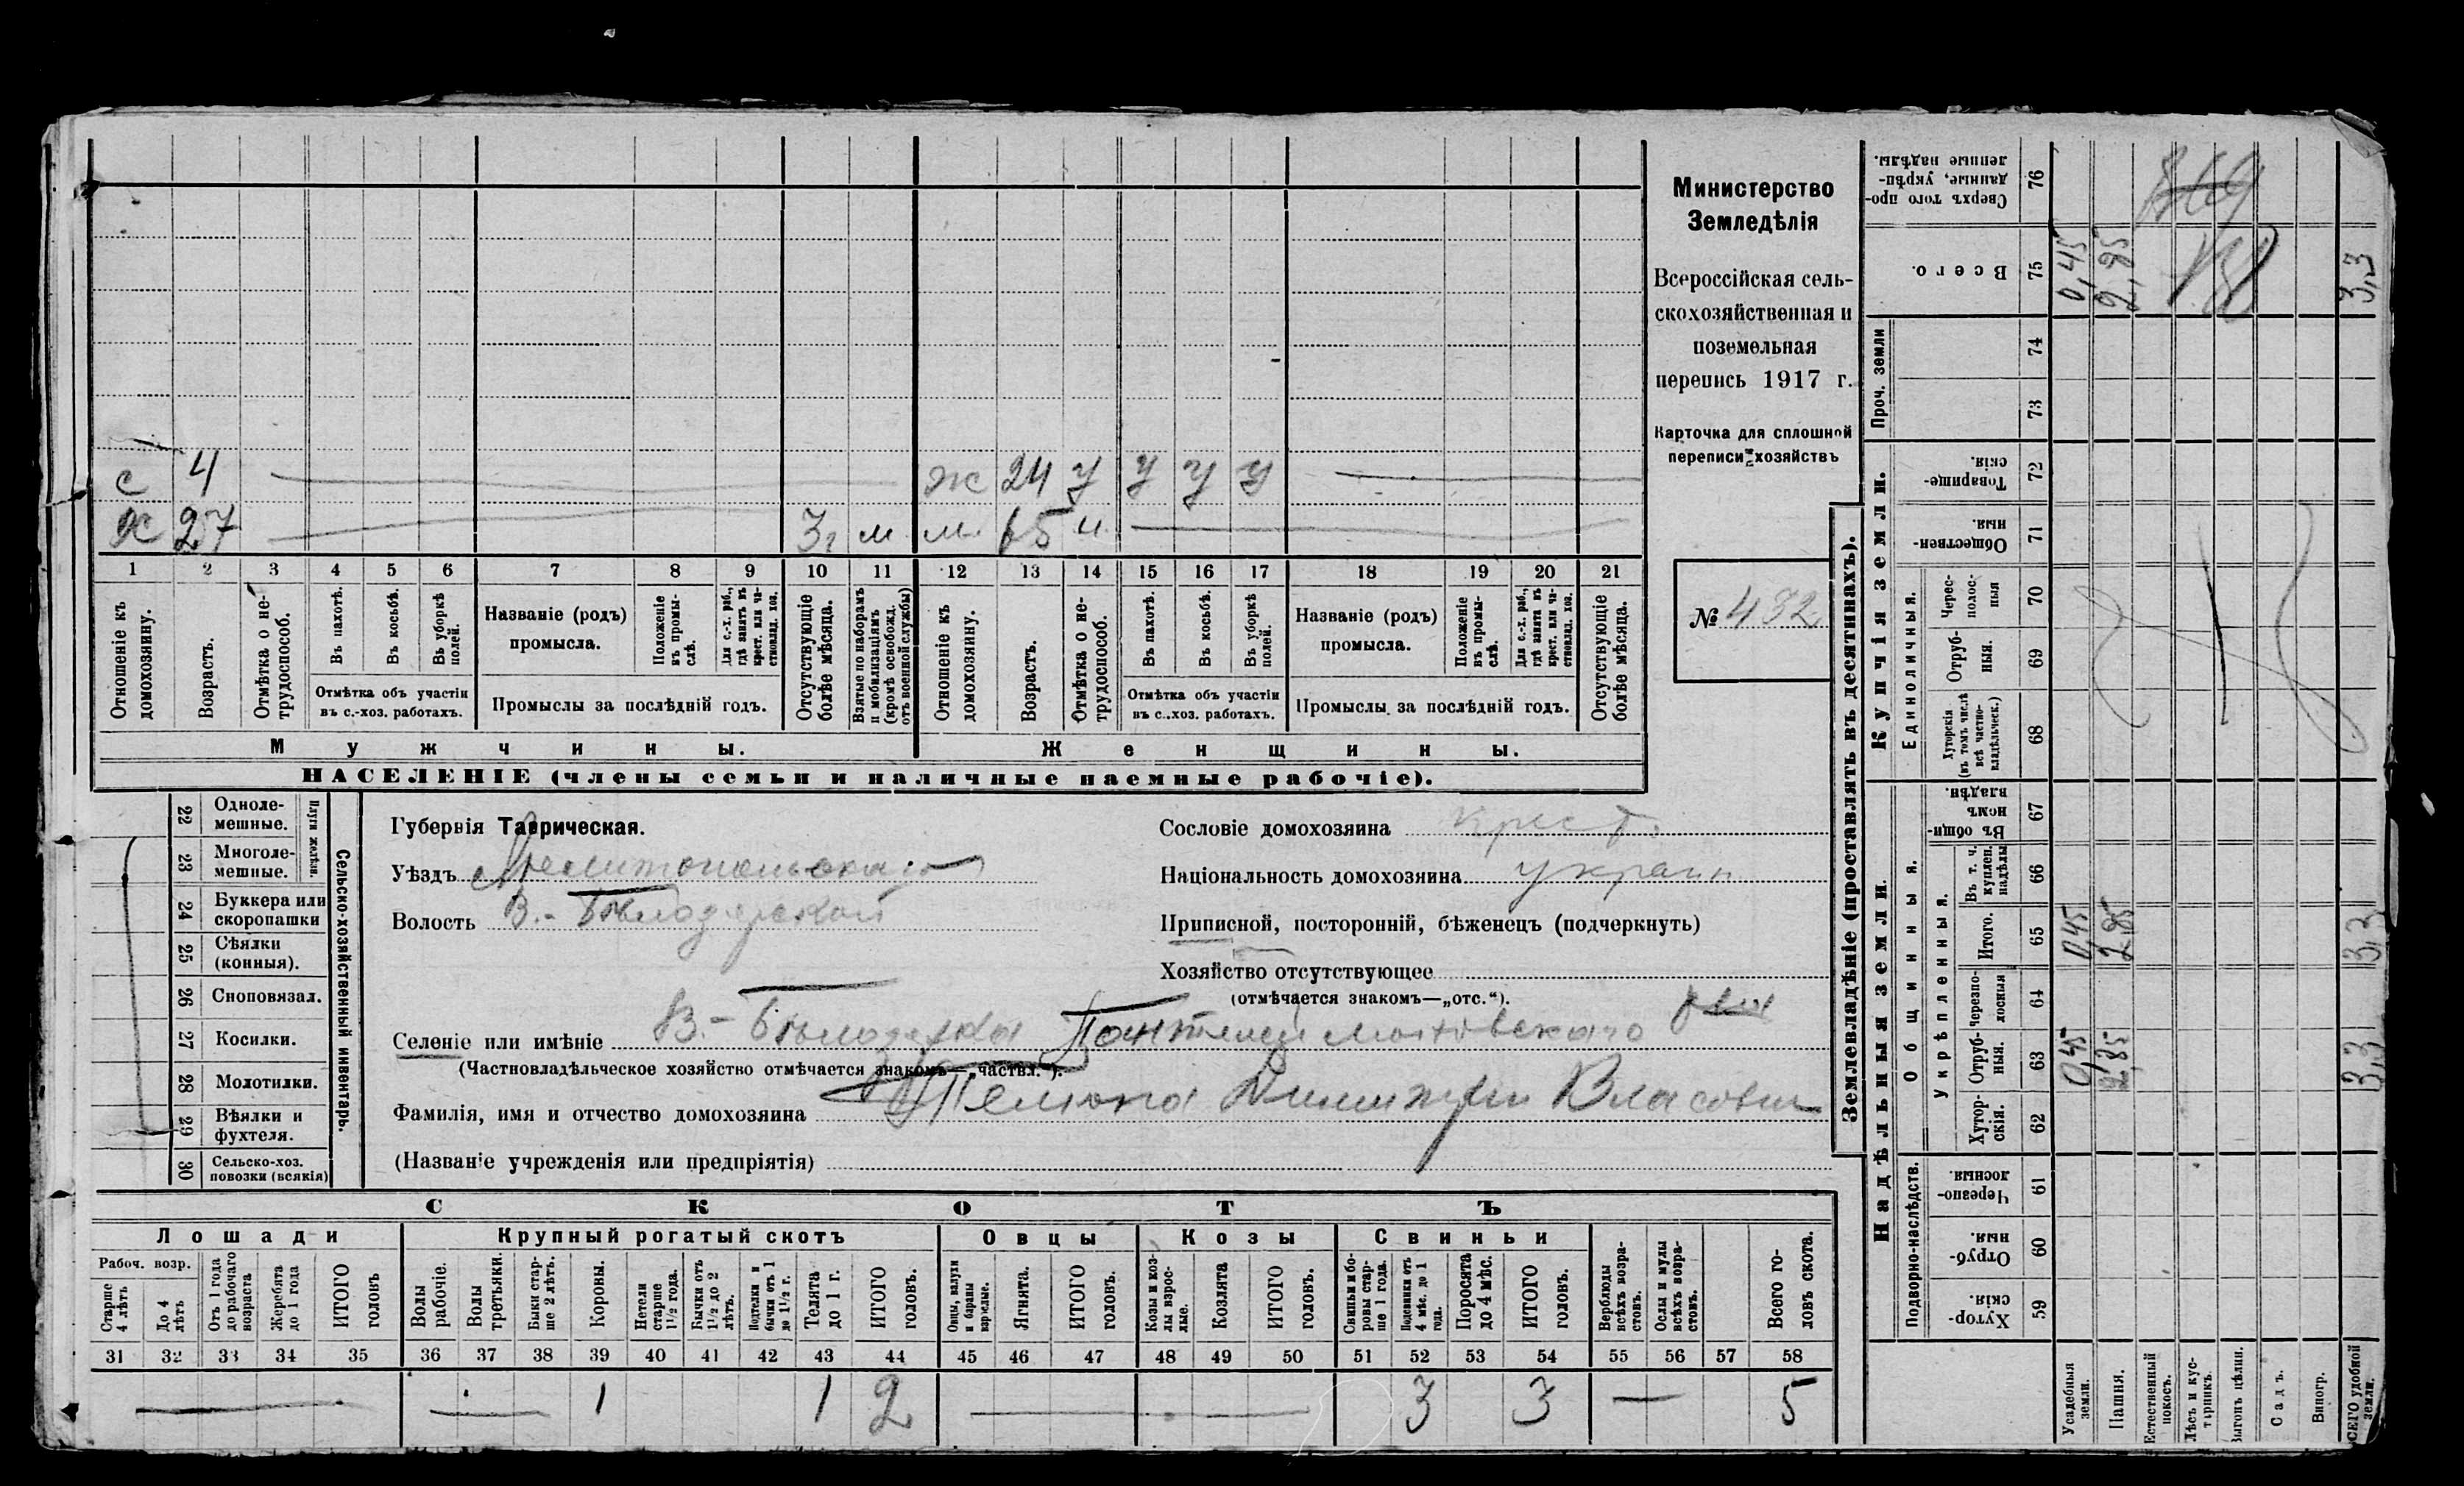 Министерство
Земледѣлія
Всероссійская сель-
скохозяйственная и
поземельная
перепись 1917 г.
Карточка для сплошной
переписи хозяйствъ
№ 432
с 4 ж 24 У У У У
х 27 3 г м м. 65 н
1 2 3 4 5 6 7 8 9 10 11 12 13 14 15 16 17 18 19 20 21
Отношеніе къ домохозяину.
Возрастъ.
Отмѣтка о не-трудоспособ.
Въ пахотѣ.
Въ косьбѣ.
Въ уборкѣ полей.
Отмѣтка объ участіи
въ с.-хоз. работахъ.
Названіе (родъ)
промысла.
Положеніе въ промы-слѣ.
Для с.-х. раб., гдѣ занятъ въ крест. или ча-стновлад. хоз.
Промыслы за послѣдній годъ.
Отсутствующіе болѣе мѣсяца.
Взятые по наборамъ и мобилизаціямъ (кромѣ освобожд. отъ военной службы)
Отношеніе къ домохозяину.
Возрастъ.
Отмѣтка о не-трудоспособ.
Въ пахотѣ.
Въ косьбѣ.
Въ уборкѣ полей.
Отмѣтка объ участіи
въ с..хоз. работахъ.
Названіе (родъ)
промысла.
Положеніе въ промы-слѣ.
Для с.-х. раб., гдѣ занята въ крест. или ча-стновлад. хоз.
Промыслы за послѣдній годъ.
Отсутствующіе болѣе мѣсяца.
Мужчины.
Женщины.
НАСЕЛЕНІЕ (члены семьи и наличные наемные рабочіе).
Сельско-хозяйственный инвентарь.
Плуги желѣзн.
22 Одноле-мешные.
23 Многоле-мешные.
24 Буккера или скоропашки
25 Сѣялки (конныя).
26 Сноповязал.
27 Косилки.
28 Молотилки.
29 Вѣялки и фухтеля.
30 Сельско-хоз. повозки (всякія)
Губернія Таврическая.
Уѣздъ Мелитопольскаго
Волость В.-Бѣлозерской
Сословіе домохозяина крест.
Національность домохозяина украин
Приписной, посторонній, бѣженецъ (подчеркнуть)
Хозяйство отсутствующее
(отмѣчается знакомъ—„отс.“).
Селеніе или имѣніе В.-Бѣлозерка
(Частновладѣльческое хозяйство отмѣчается знакомъ—„частвл.“).
Фамилія, имя и отчество домохозяина Власович
(Названіе учрежденія или предпріятія)
СКОТЪ
Лошади
Крупный рогатый скотъ
Овцы
Козы
Свиньи
Рабоч. возр.
Старше 4 лѣтъ
До 4 лѣтъ
Отъ 1 года до рабочаго возраста
Жеребята до 1 года
ИТОГО головъ
Волы рабочіе.
Волы третьяки.
Быки стар-ше 2 лѣтъ.
Коровы.
Нетели старше 1½ года.
Бычки отъ 1½ до 2 лѣтъ.
Подтелки и бычки отъ 1 до 1½ г.
Телята до 1 г.
ИТОГО головъ.
Овцы, валухи и бараны взрослые.
Ягнята.
ИТОГО головъ.
Козы и коз-лы взрос-лые.
Козлята
ИТОГО головъ.
Свиньи и бо-ровы стар-ше 1 года.
Подсвинки отъ 4 мѣс. до 1 года.
Поросята до 4 мѣс.
ИТОГО головъ.
Верблюды всѣхъ возра-стовъ.
Ослы и мулы всѣхъ возра-стовъ.
Всего го-ловъ скота.
31 32 33 34 35 36 37 38 39 40 41 42 43 44 45 46 47 48 49 50 51 52 53 54 55 56 57 58
1 1 2 3 3 — 5
Землевладѣніе (проставлять въ десятинахъ).
Надѣльныя земли.
Купчія земли.
Проч. земли
Подворно-наслѣдств.
Общинныя.
Укрѣпленныя.
Единоличныя.
Хутор-скія. 59
Отруб-ныя. 60
Черезпо-лосныя 61
Хутор-скія. 62
Отруб-ныя. 63
Черезпо-лосныя 64
Итого. 65
Въ т. ч. куплен. надѣлы 66
Въ общин-номъ владѣн. 67
Хуторскія (въ томъ числѣ всѣ частно-владѣльческ.) 68
Отруб-ныя. 69
Черес-полос-ныя 70
Обществен-ныя. 71
Товарище-скія. 72
73
74
Всего. 75
Сверхъ того про-данные, укрѣп-ленные надѣлы. 76
Усадебныя земли. 0,45 0,45 0,45
Пашня. 2,85 2,85 2,85
Естественный покосъ.
Лѣсъ и кус-тарникъ.
Выгонъ цѣлин.
Садъ.
Виногр.
ВСЕГО удобной земли. 3,3 3,3 3,3